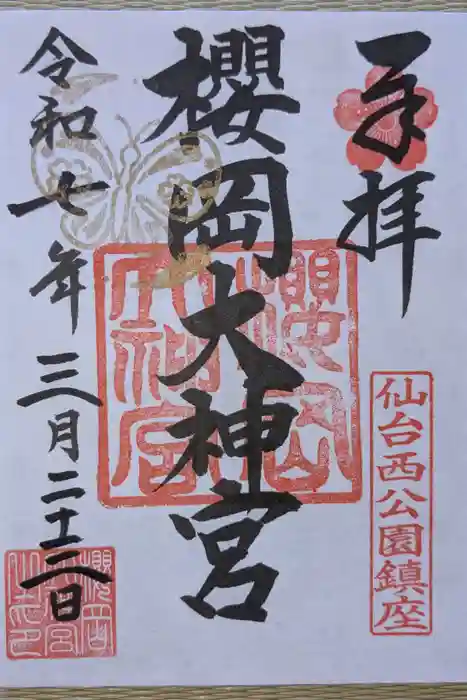 奉拝
仙台西公園鎮座
櫻岡大神宮
櫻岡大神宮
令和七年三月二十三日